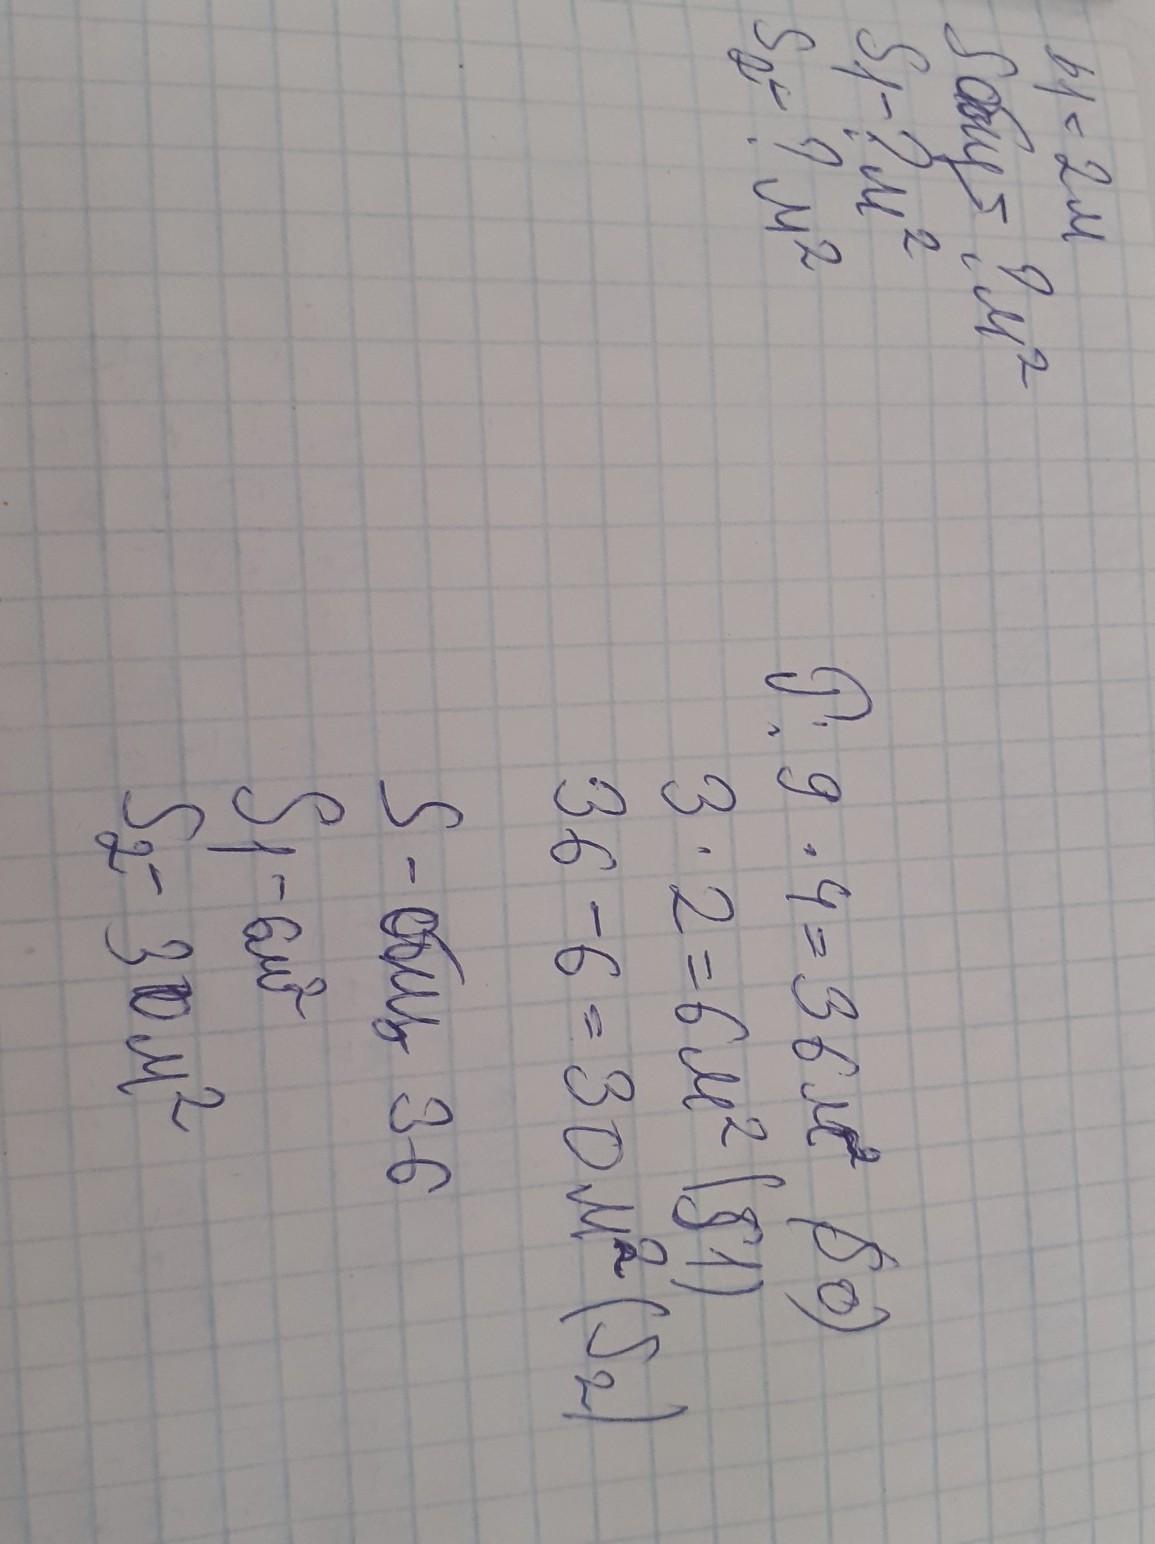 b1 = 2м
Sобщ - ? м²
S1 - ? м²
S2 - ? м²
Р: 9 · 4 = 36 м² (Sо)
3 · 2 = 6 м² (S1)
36 - 6 = 30 м² (S2)
S - общ 36
S1 - 6м²
S2 - 30 м²